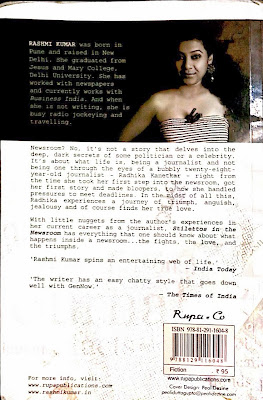 RASHMI KUMAR was born in
Pune and raised in New
Delhi. She graduated from
Jesus and Mary College,
Delhi University. She has
worked with newspapers
and currently works with
Business India. And when
she is not writing, she is
busy radio jockeying and
travelling.
Newsroom? No, it's not a story that delves into the
deep, dark secrets of some politician or a celebrity.
It's about what life is, being a journalist and not
being one through the eyes of a bubbly twenty-eight-
year-old journalist - Radhika Kanetkar - right from
the time she took her first step into the newsroom, got
her first story and made bloopers, to how she handled
pressures to meet deadlines. In the midst of all this,
Radhika experiences a journey of triumph, anguish,
jealousy and of course finds her true love.
With little nuggets from the author's experiences in
her current career as a journalist, Stilettos in the
Newsroom has everything that one should know about what
happens inside a newsroom...the fights, the love, and
the triumphs.
'Rashmi Kumar spins an entertaining web of life.'
- India Today
'The writer has an easy chatty style that goes down
well with GenNow.'
- The Times of India
Rupa & Co
ISBN 978-81-291-1604-8
9 788129 116048
Fiction
₹ 95
www.rupapublications.com
Cover Design: Peali Dezine
pealiduttagupta@pealidezine.com
For more info, visit:
www.rupapublications.com
www.rashmikumar.in